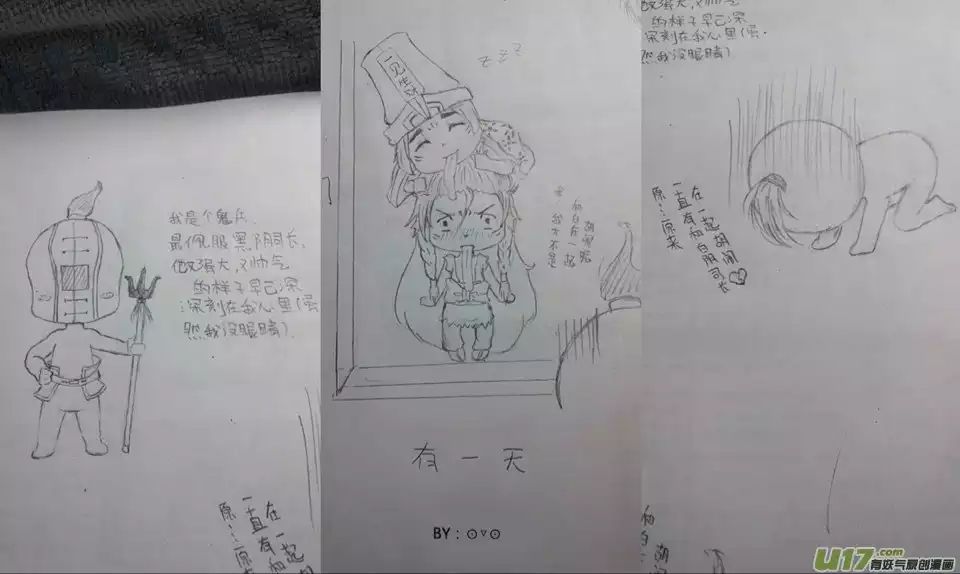 我是个鬼兵.
最佩服黑阴司长,
他又强大,又帅气
的样子早已深
深刻在我心里(虽
然我没眼睛)
在一起
一直有和
原……原来
zzz
一见生财
胡闹呢
和白在一起
我才不是
有一天
BY:⊙▽⊙
他又强大,又帅气
的样子早已深
深刻在我心里(虽
然我没眼睛)
在一起胡闹
一直有和白阴司长
原……原来
U17.com
有妖气原创漫画